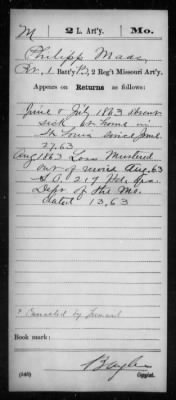 M 2 L. Art'y. Mo.
Philipp Maas,
Pv., 1 Batt'y B, 2 Reg't Missouri Art'y.
Appears on Returns as follows:
June & July 1863 Absent
sick at home in
St. Louis since June
27, 63
Aug 1863 Loss Mustered
out of service Aug, 63
S.O. 217 Hd. Qrs.
Dept of the Mo.
dated 13, 63
Book mark:
(546) Copyist.